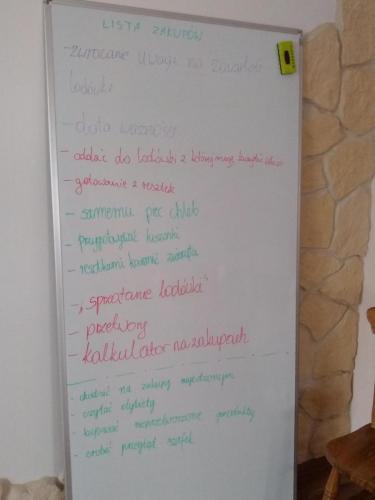 LISTA ZAKUPÓW
- zwracanie uwagi na zawartość
lodówki
- data ważności
- oddać do lodówki z której mogę
- gotowanie z resztek
- samemu piec chleb
- przygotowywać kiszonki
- resztkami karmić zwierzęta
- "sprzątanie lodówki"
- przetwory
- kalkulator na zakupach
- chodzić na zakupy najedzonym
- czytać etykiety
- kupować nieprzetworzone produkty
- zrobić przegląd szafek